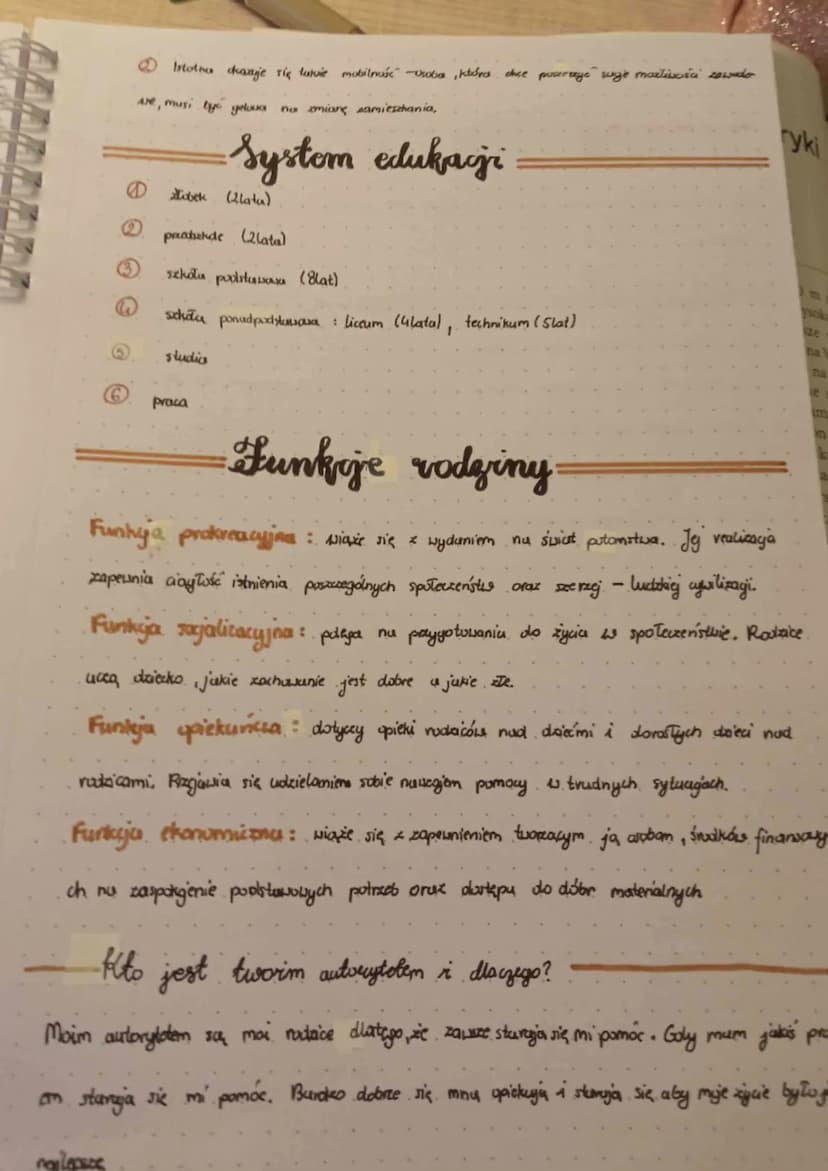 ② Istotna okazuje się także mobilność - osoba, która chce poszerzyć swoje możliwości zawodo
we, musi być gotowa na zmianę zamieszkania.
System edukacji
① żłobek (2lata)
② przedszkole (2lata)
③ szkoła podstawowa (8lat)
④ szkoła ponadpodstawowa : liceum (4lata), technikum (5lat)
⑤ studia
⑥ praca
Funkcje rodziny
Funkcja prokreacyjna : wiąże się z wydaniem na świat potomstwa. Jej realizacja
zapewnia ciągłość istnienia poszczególnych społeczeństw oraz szerzej - ludzkiej cywilizacji.
Funkcja socjalizacyjna : polega na przygotowaniu do życia w społeczeństwie. Rodzice
uczą dziecko, jakie zachowanie jest dobre a jakie złe.
Funkcja opiekuńcza : dotyczy opieki rodziców nad dziećmi i dorosłych dzieci nad
rodzicami. Przejawia się udzielaniem sobie nawzajem pomocy w trudnych sytuacjach.
Funkcja ekonomiczna : wiąże się z zapewnieniem tworzącym ją osobom, środków finansowy
ch na zaspokojenie podstawowych potrzeb oraz dostępu do dóbr materialnych
Kto jest twoim autorytetem i dlaczego?
Moim autorytetem są moi rodzice dlatego, że zawsze starają się mi pomóc. Gdy mam jakiś pro
em starają się mi pomóc. Bardzo dobrze się mną opiekują i starają się aby moje życie było j
najlepsze
ryki